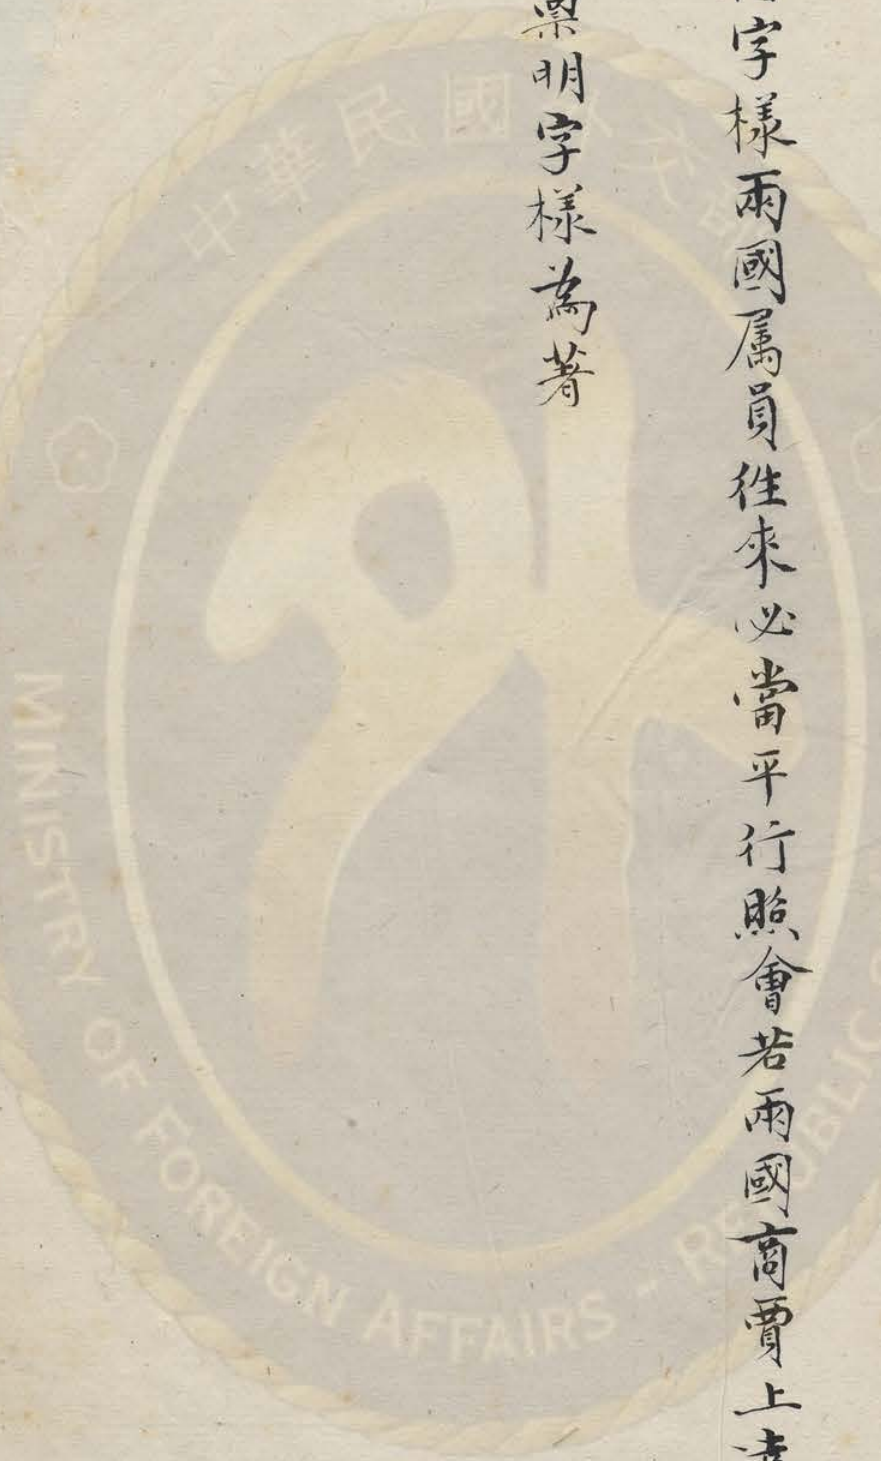 字樣兩國属員徃來必當平行照會若兩國商賈上
稟明字樣為著
中華民國
MINISTRY OF FOREIGN AFFAIRS - REPUBLIC